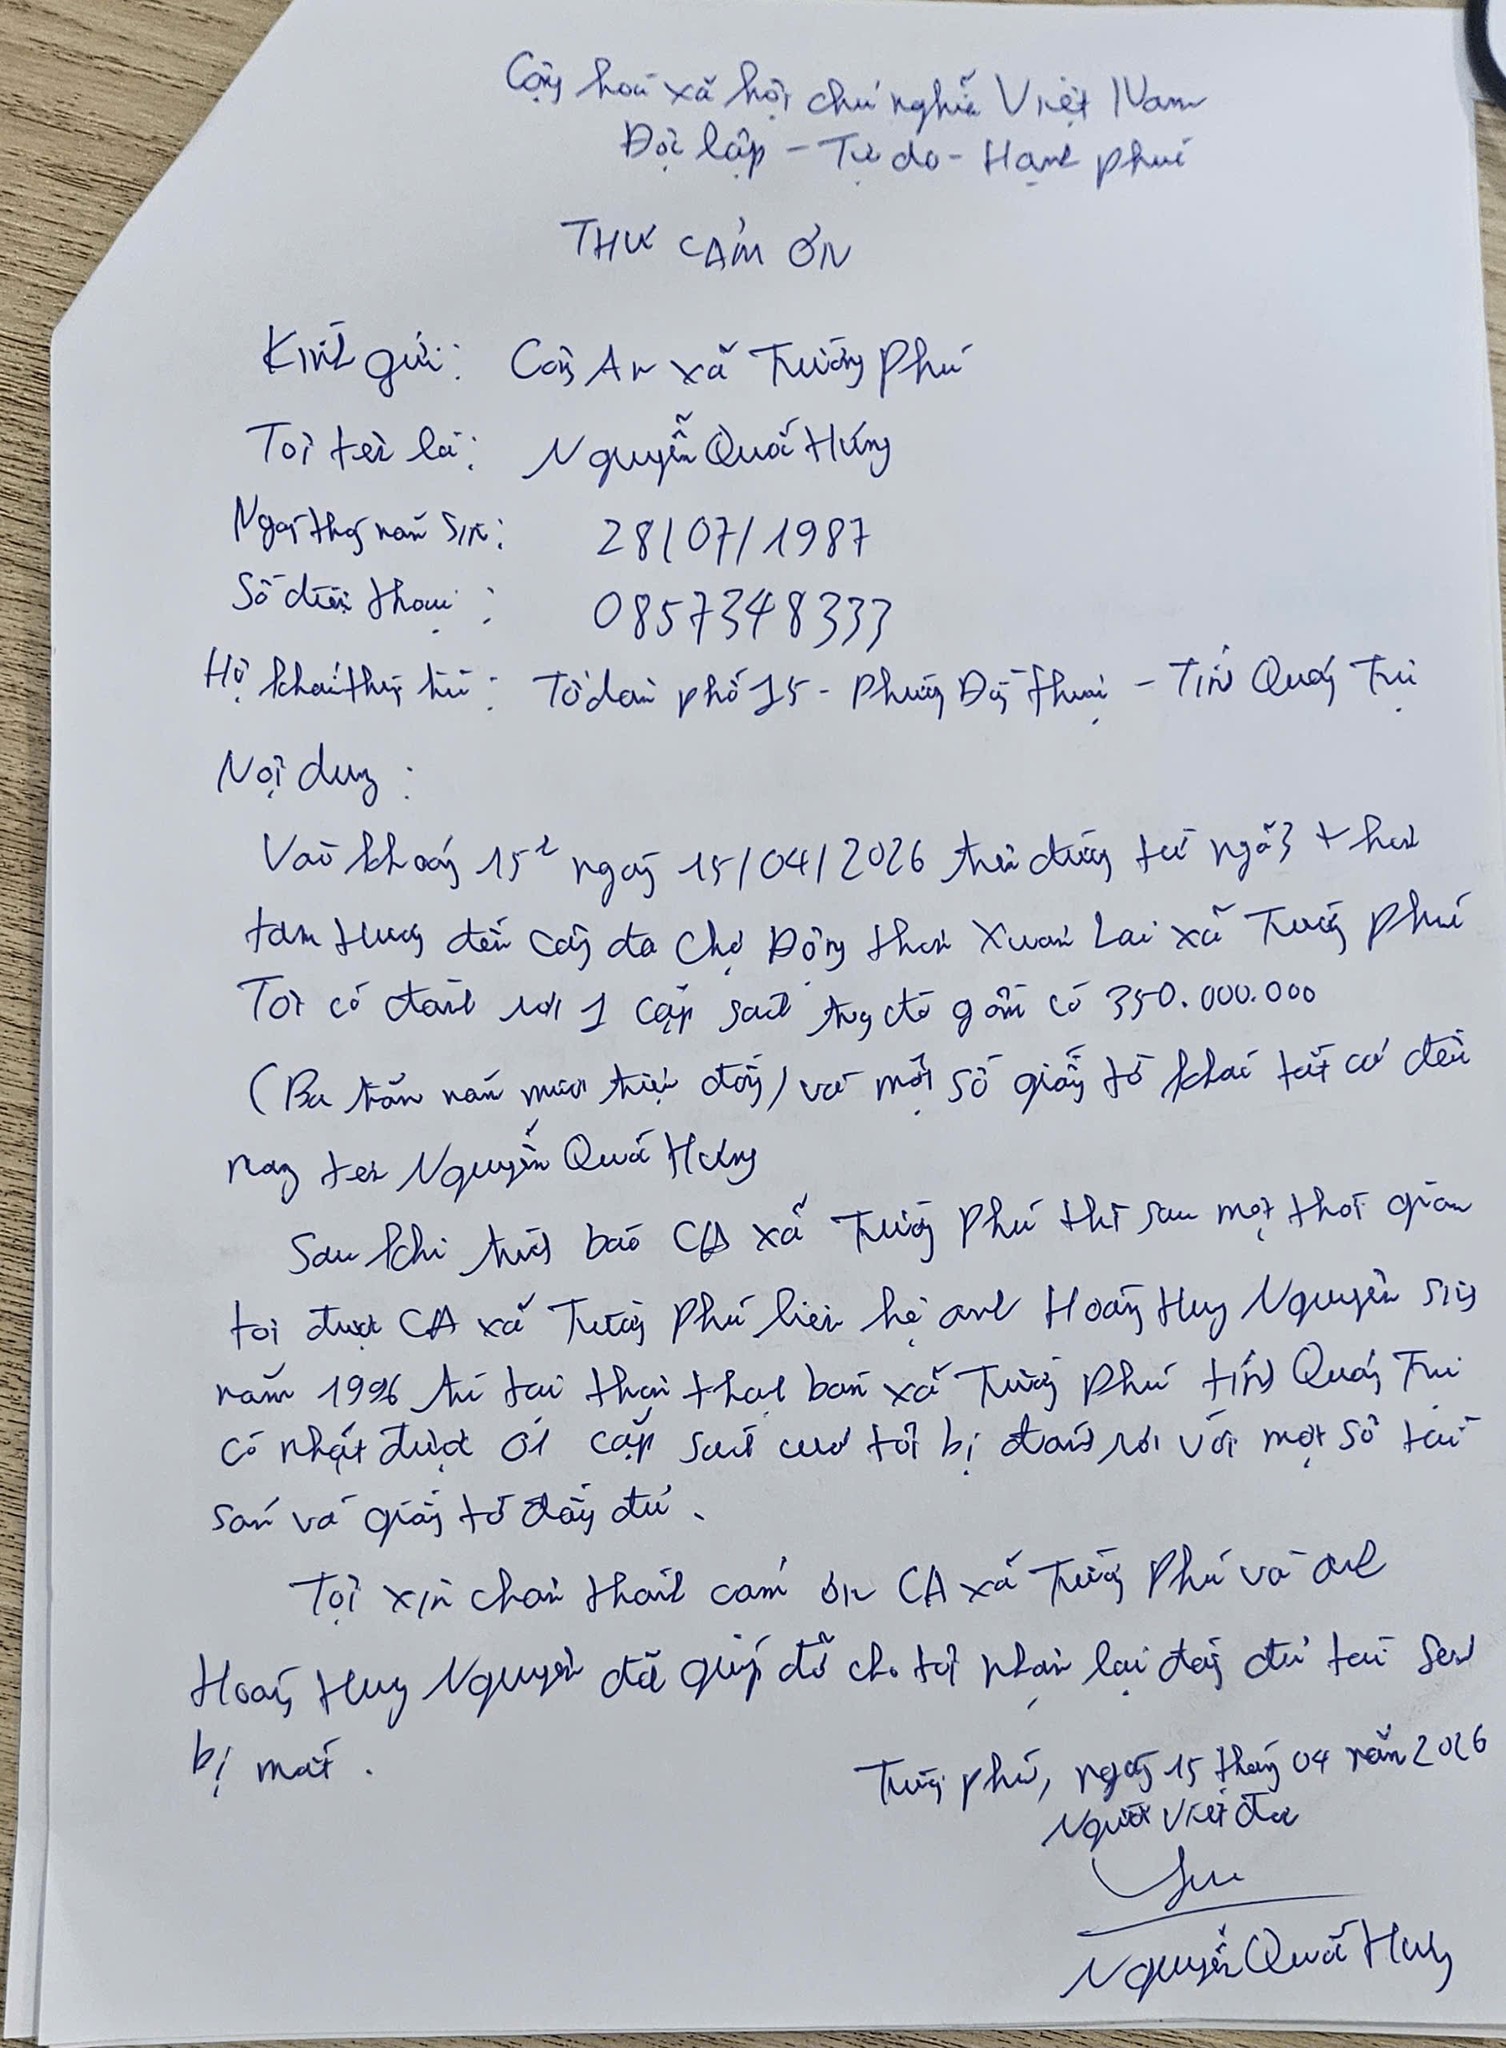 Cộng hoà xã hội chủ nghĩa Việt Nam
Độc lập - Tự do - Hạnh phúc
THƯ CẢM ƠN
Kính gửi: Công An xã Trường Phú
Tôi tên là: Nguyễn Quốc Hưng
Ngày tháng năm sinh: 28/07/1987
Số điện thoại: 0857348333
Hộ khẩu thường trú: Tổ dân phố 15 - Phường Đồng Thuận - Tỉnh Quảng Trị
Nội dung:
Vào khoảng 15h ngày 15/04/2026 trên đường từ ngã 3 thôn
tam Hương đến cây đa Chợ Động thôn Xuân Lai xã Trường Phú
Tôi có đánh rơi 1 cặp sách trong đó gồm có 350.000.000
(Ba trăm năm mươi triệu đồng) và một số giấy tờ khác tất cả đều
mang tên Nguyễn Quốc Hưng
Sau khi trình báo CA xã Trường Phú thì sau một thời gian
tôi được CA xã Trường Phú liên hệ anh Hoàng Huy Nguyên sinh
năm 1996 trú tại thôn thạch bàn xã Trường Phú tỉnh Quảng Trị
có nhặt được 01 cặp sách của tôi bị đánh rơi với một số tài
sản và giấy tờ đầy đủ.
Tôi xin chân thành cảm ơn CA xã Trường Phú và anh
Hoàng Huy Nguyên đã giúp đỡ cho tôi nhận lại đầy đủ tài sản
bị mất.
Trường Phú, ngày 15 tháng 04 năm 2026
Người viết đơn
Nguyễn Quốc Hưng